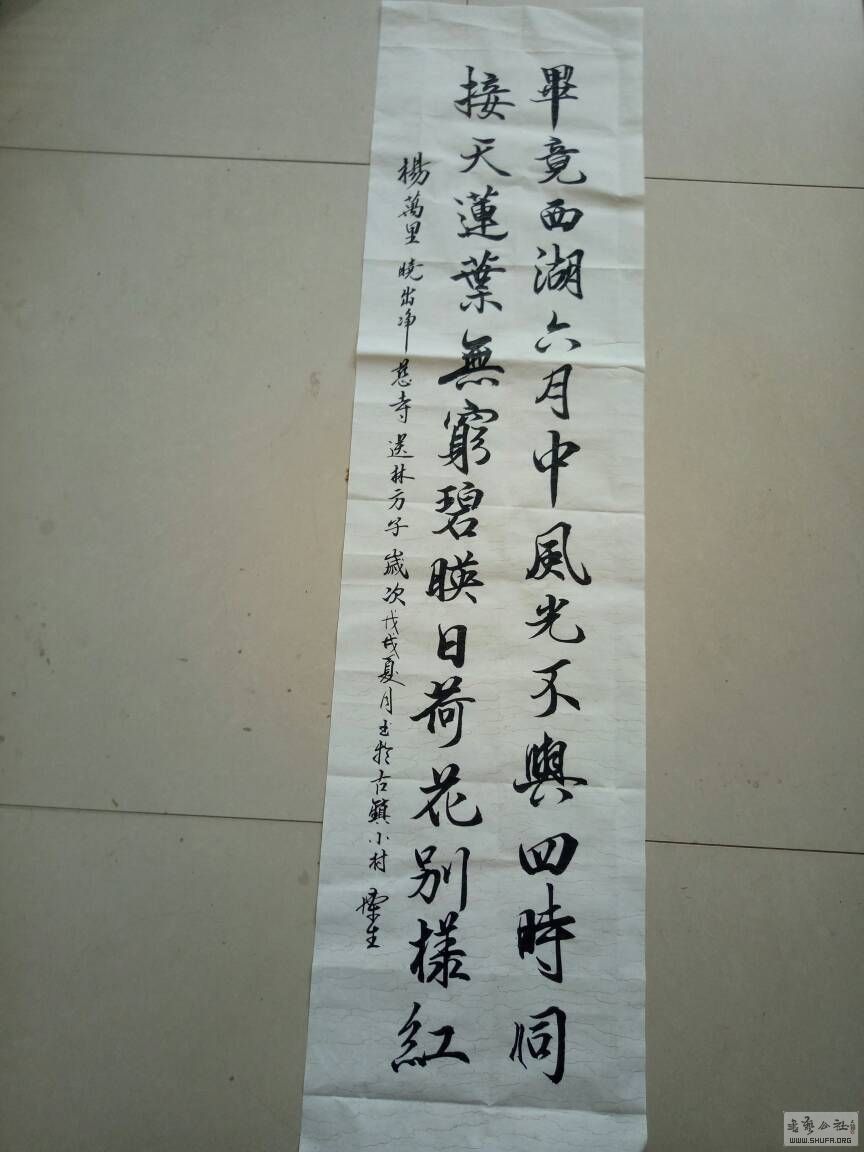 畢竟西湖六月中風光不與四時同
接天蓮葉無窮碧暎日荷花別樣紅
楊萬里 曉出净慈寺送林方子 歲次戊戌夏月书於古鎮小村 榮生
书艺公社
WWW.SHUFA.ORG